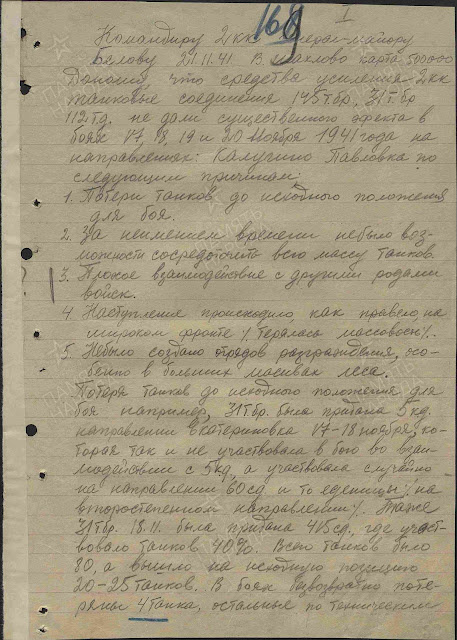 168
I
Командиру 2 кк генерал-майору
Белову 21.11.41 В. Махлово карта 500000
Доношу, что средства усиления 2 кк
танковые соединения 145 Тбр, 31 Тбр
112 тд. не дали существенного эфекта в
боях 17, 18, 19 и 20 ноября 1941 года на
направлениях: Калугино Павловка по
следующим причинам:
1. Потери танков до исходного положения
для боя.
2. За неимением времени небыло воз-
можности сосредоточить всю массу танков.
3. Плохое взаимодействие с другими родами
войск.
4. Наступление происходило как правело, на
широком фронте /. терялась массовость/.
5. Небыло создано отрядов разграждения, осо-
бенно в больших масивах леса.
Потеря танков до исходного положения для
боя например, 31 Тбр. была придана 5 кд.
направлении Екатериновка 17-18 ноября, ко-
торая так и не участвовала в бою во взаи-
модействии с 5 кд, а участвовала случайно
на направлении 60 сд и то еденицы /. на
второстепенном направлении/. Также
31 Тбр. 18.11. была придана 415 сд., где участ-
вовало танков 40%. Всего танков было
80, а вышло на исходную позицию
20-25 танков. В боях безвозвратно поте-
ряны 4 танка, остальные по техническим